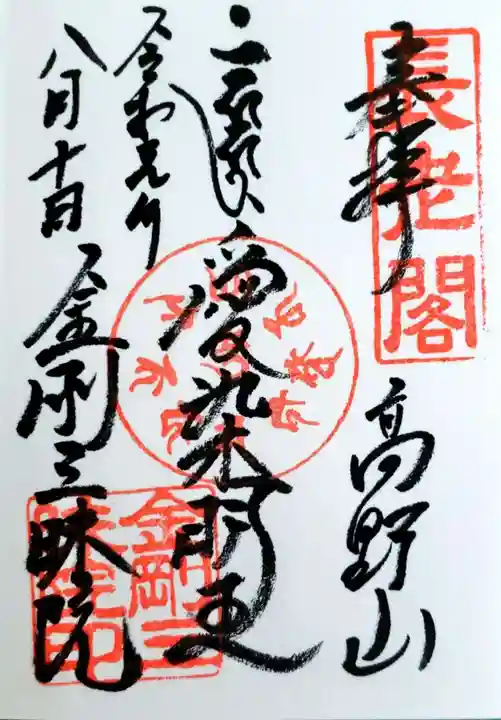 奉拝
長老閣
高野山
愛染明王
令和元年
八月十日
金剛三昧院
金剛三
昧院印